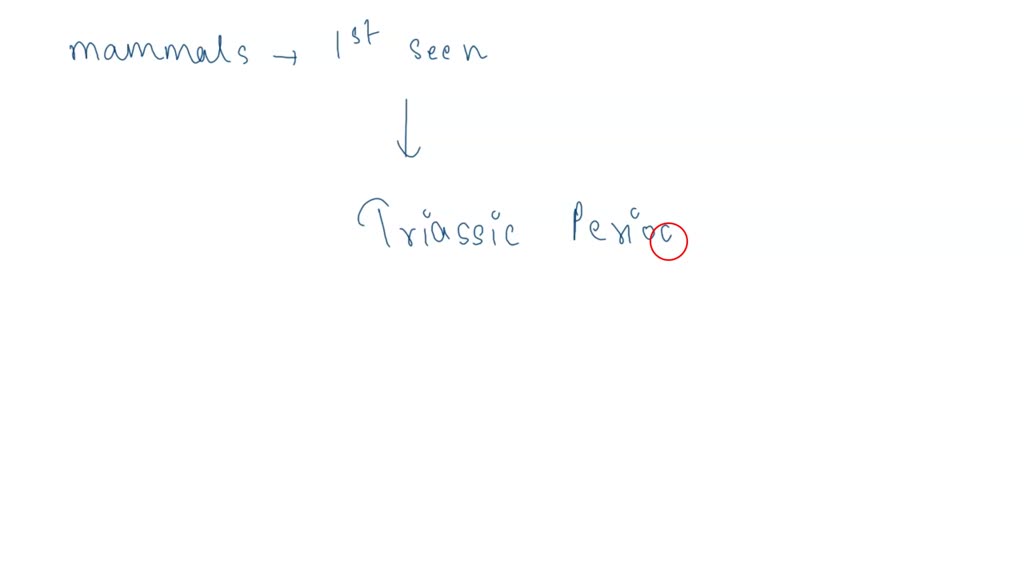 mammals → 1st seen
↓
Triassic Perioc